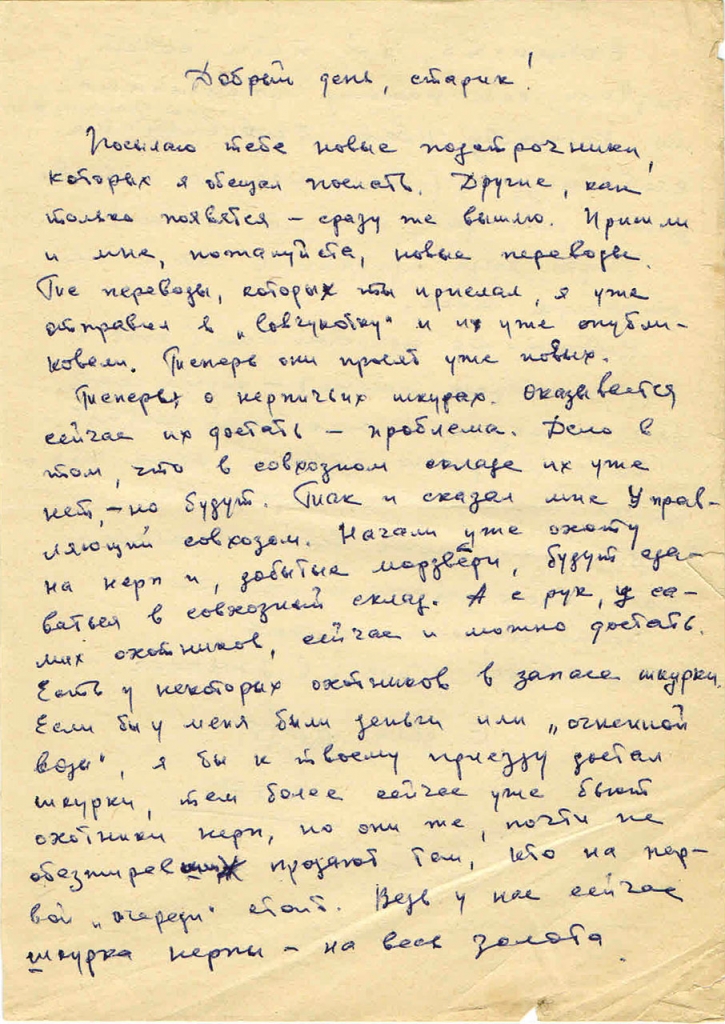 Добрый день, старик!
Посылаю тебе новые подстрочники,
которых я обещал послать. Другие, как
только появятся – сразу же вышлю. Пришли
и мне, пожалуйста, новые переводы.
Те переводы, которых ты прислал, я уже
отправил в „Совчукотку" и их уже опубли-
ковали. Теперь они просят уже новых.
Теперь о нерпичьих шкурах. Оказывается
сейчас их достать – проблема. Дело в
том, что в совхозном складе их уже
нет, – но будут. Так и сказал мне Управ-
ляющий совхозом. Начали уже охоту
на нерп и, добытые морзвери, будут сда-
ваться в совхозный склад. А с рук, у са-
мих охотников, сейчас и можно достать.
Есть у некоторых охотников в запасе шкурки.
Если бы у меня были деньги или „огненной
воды", я бы к твоему приезду достал
шкурки, тем более сейчас уже бьют
охотники нерп, но они же, почти не
обезжирев продают тем, кто на пер-
вой „очереди" стоит. Ведь у нас сейчас
шкурка нерпы – на весь золота.